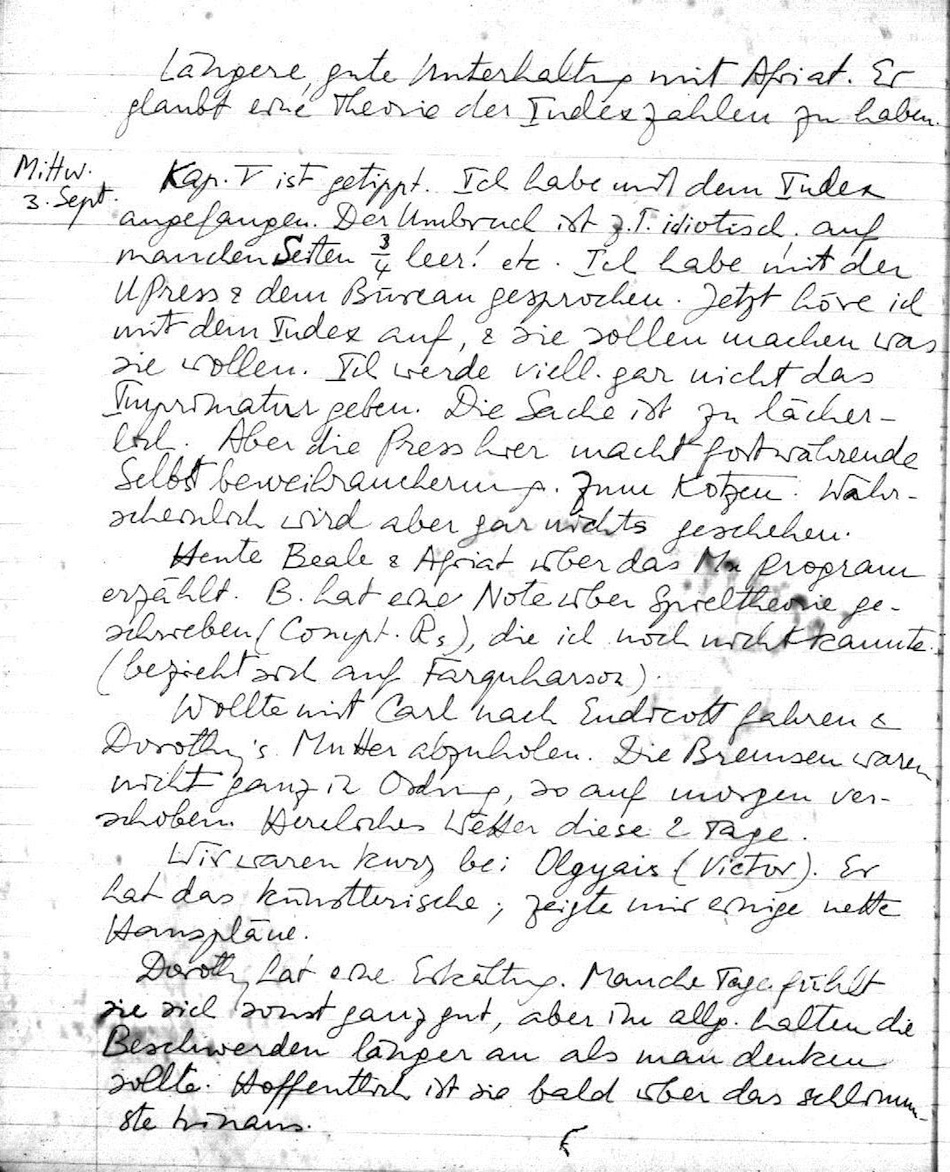 Längere, gute Unterhaltung mit Afriat. Er
glaubt eine Theorie der Indexzahlen zu haben.
Mittw.
3. Sept.
Kap. V ist getippt. Ich habe mit dem Index
angefangen. Der Umbruch ist z.T. idiotisch, auf
manchen Seiten 3/4 leer! etc. Ich habe mit der
UPress & dem Bureau gesprochen. Jetzt höre ich
mit dem Index auf, & sie sollen machen was
sie wollen. Ich werde viell. gar nicht das
Imprimatur geben. Die Sache ist zu lächer-
lich. Aber die Press hier macht fortwährende
Selbstbeweihräucherung. Zum Kotzen. Wahr-
scheinlich wird aber gar nichts geschehen.
Heute Beale & Afriat über das Program
erzählt. B. hat eine Note über Spieltheorie ge-
schrieben (Compt. Rs), die ich noch nicht kannte.
(bezieht sich auf Farquharson).
Wollte mit Carl nach Endicott fahren &
Dorothy's Mutter abzuholen. Die Bremsen waren
nicht ganz in Ordnung, so auf morgen ver-
schoben. Herrliches Wetter diese 2 Tage.
Wir waren kurz bei Olgyais (Victor). Er
hat das künstlerische; zeigte mir einige nette
Hauspläne.
Dorothy hat eine Erkältung. Manche Tage fühlt
sie sich sonst ganz gut, aber im allg. halten die
Beschwerden länger an als man denken
sollte. Hoffentlich ist sie bald über das schlimm-
ste hinaus.